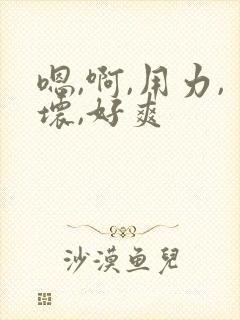 嗯,啊,用力,
壞,好爽
沙漠鱼兒